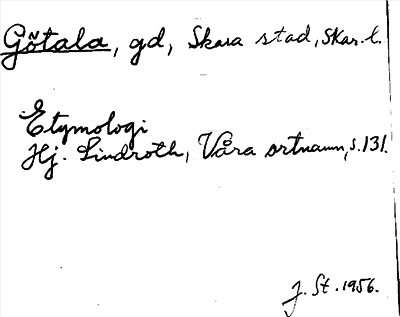 Götala, gd, Skara stad, Skar. l.
Etymologi
Hj. Lindroth, Våra ortnamn, s. 131.
J. St. 1956.